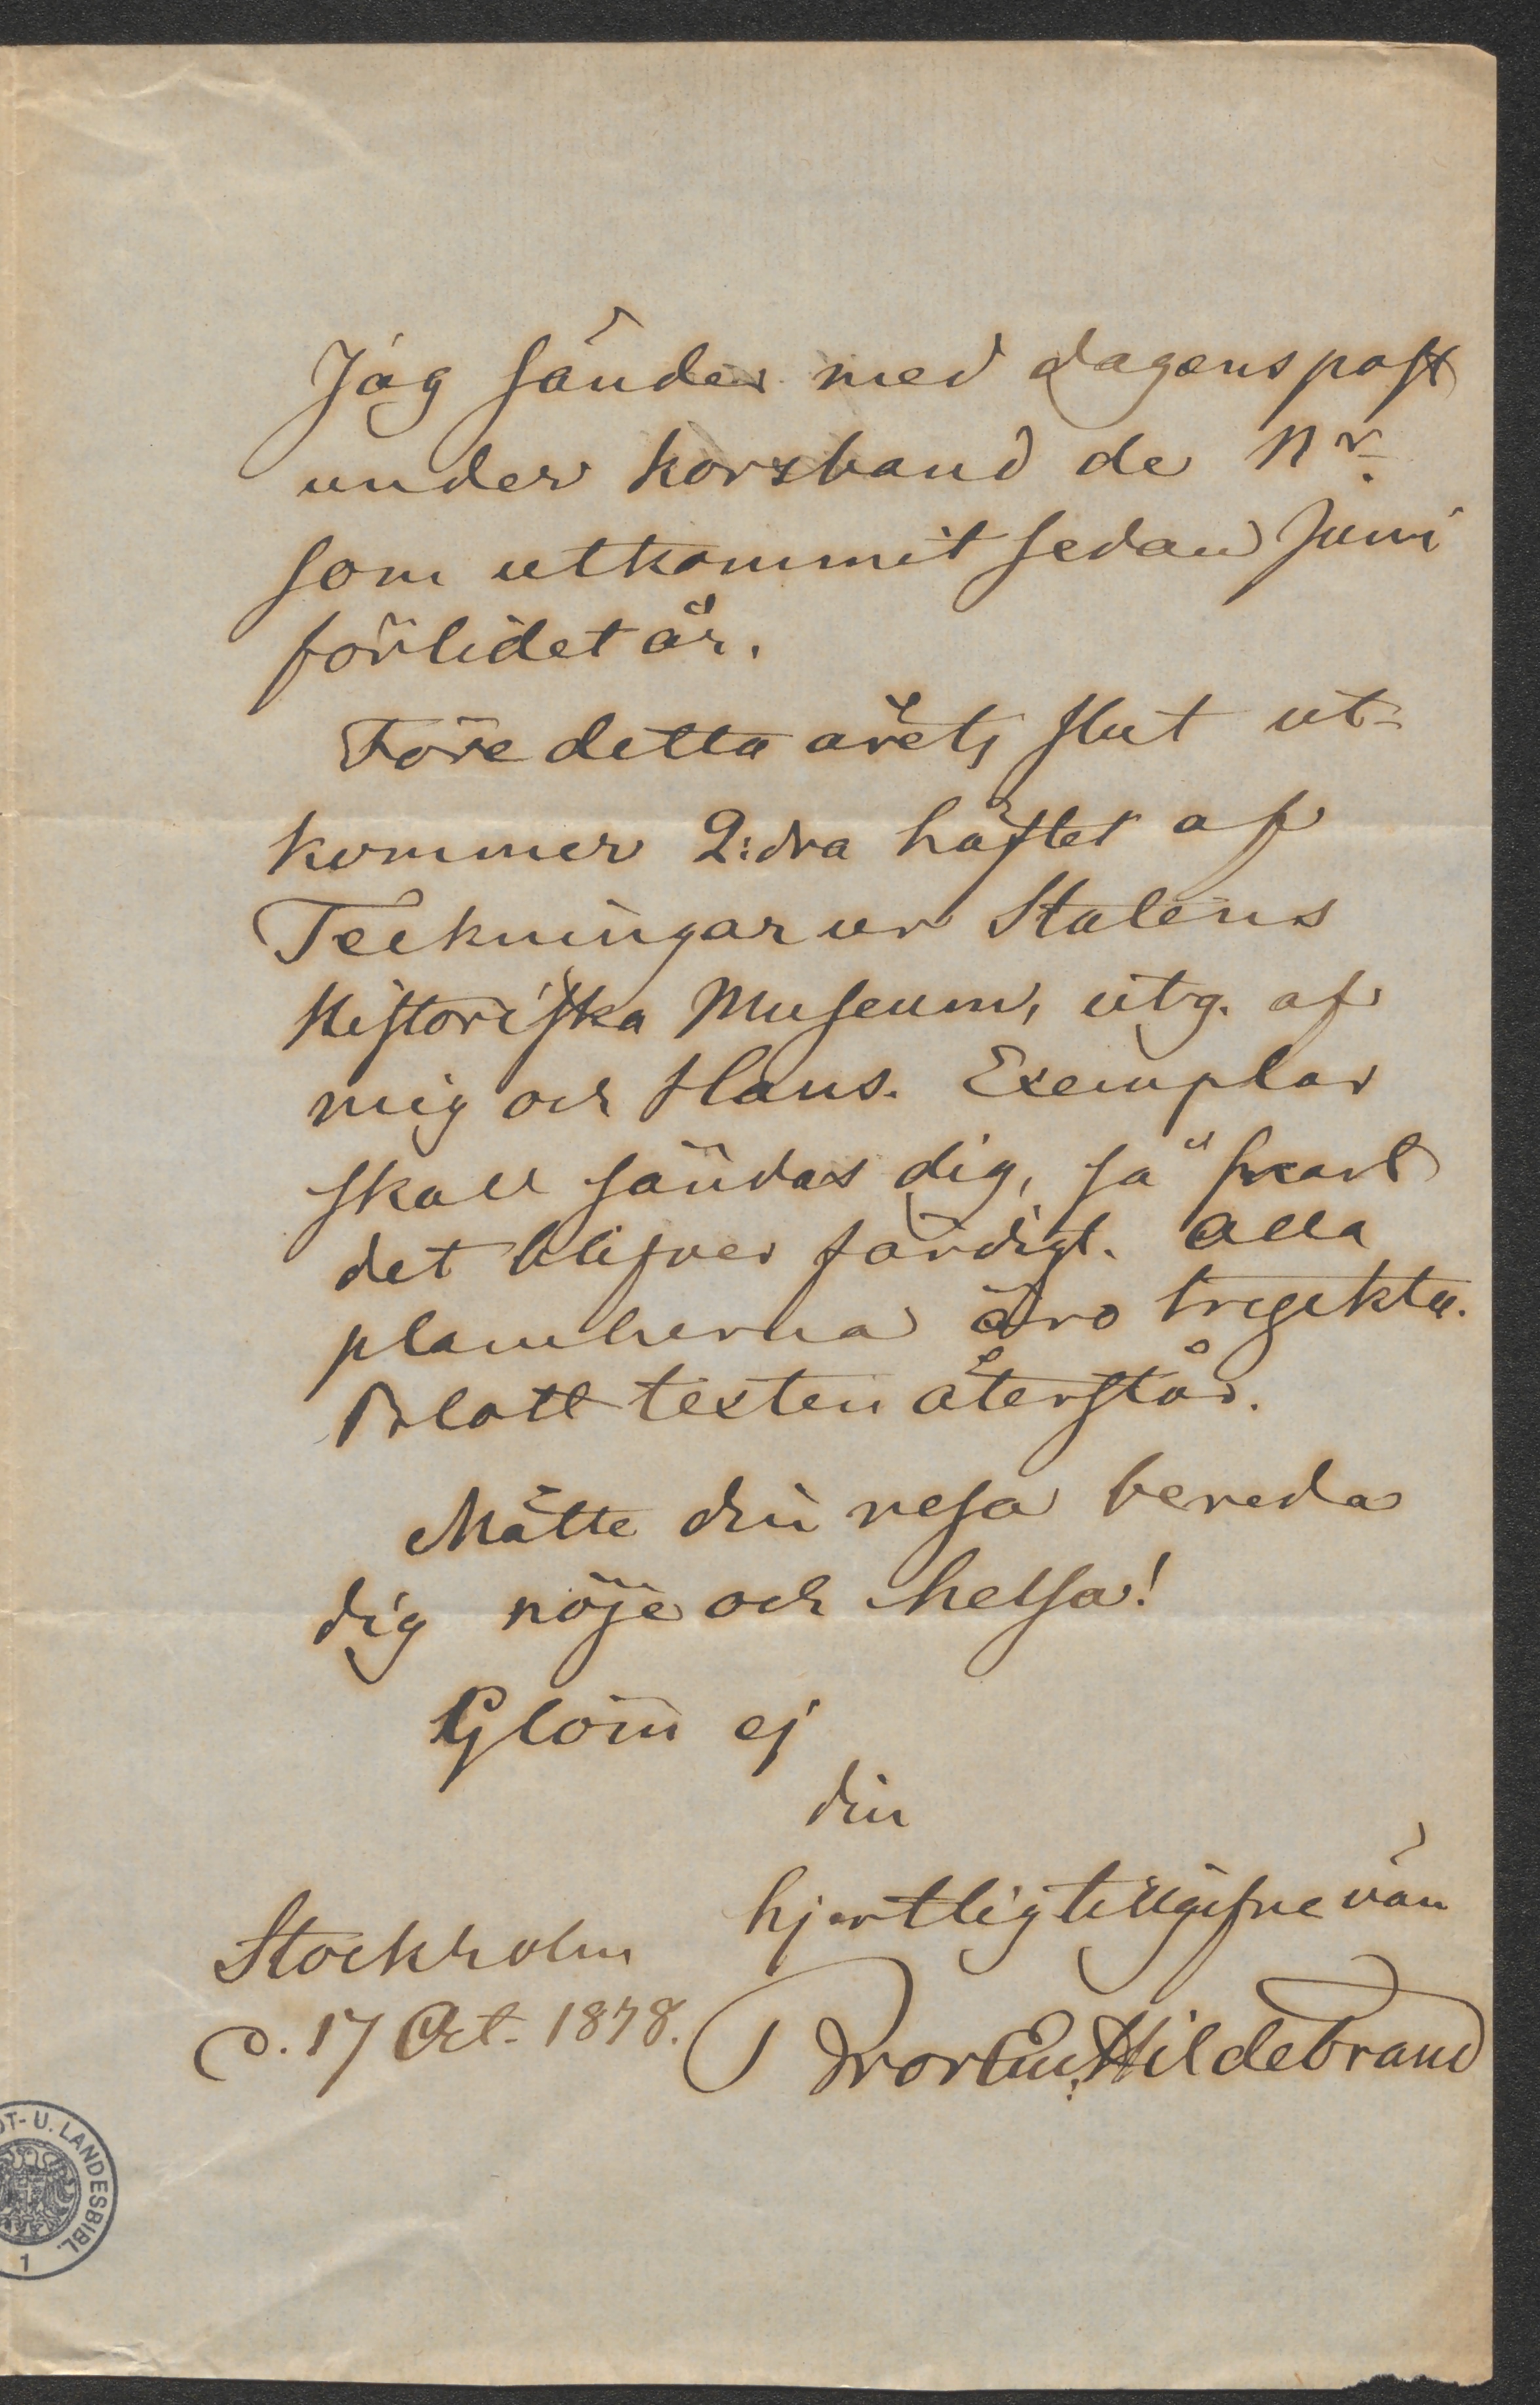 Jag sänder med dagens post
under korsband de Nr
som utkommit sedan Juni
förlidet år.
Före detta årets slut ut-
kommer 2:dra häftet af
Teckningar ur Statens
Historiska Museum, utg. af
mig och Hans. Exemplar
skall sändas dig, så snart
det blifver färdigt. Alla
plancherna äro tryckta.
Blott texten återstår.
Måtte din resa bereda
dig nöje och helsa!
Glöm ej
din
hjertligt tillgifne vän
Stockholm
d. 17 Oct. 1878.
Bror Em. Hildebrand
DT- U. LANDESBIBL.
1